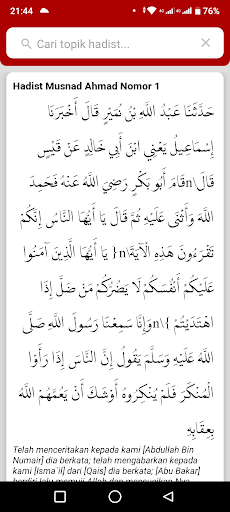 21:44
4G 4G 76%
Cari topik hadist...
Hadist Musnad Ahmad Nomor 1
حَدَّثَنَا عَبْدُ اللَّهِ بْنُ نُمَيْرٍ قَالَ أَخْبَرَنَا
إِسْمَاعِيلُ يَعْنِي ابْنَ أَبِي خَالِدٍ عَنْ قَيْسٍ
قَالَ\nقَامَ أَبُو بَكْرٍ رَضِيَ اللَّهُ عَنْهُ فَحَمِدَ
اللَّهَ وَأَثْنَى عَلَيْهِ ثُمَّ قَالَ يَا أَيُّهَا النَّاسُ إِنَّكُمْ
تَقْرَءُونَ هَذِهِ الْآيَةَ\n{ يَا أَيُّهَا الَّذِينَ آمَنُوا
عَلَيْكُمْ أَنْفُسَكُمْ لَا يَضُرُّكُمْ مَنْ ضَلَّ إِذَا
اهْتَدَيْتُمْ }\nوَإِنَّا سَمِعْنَا رَسُولَ اللَّهِ صَلَّى
اللَّهُ عَلَيْهِ وَسَلَّمَ يَقُولُ إِنَّ النَّاسَ إِذَا رَأَوْا
الْمُنْكَرَ فَلَمْ يُنْكِرُوهُ أَوْشَكَ أَنْ يَعُمَّهُمْ اللَّهُ
بِعِقَابِهِ
Telah menceritakan kepada kami [Abdullah Bin
Numair] dia berkata; telah mengabarkan kepada
kami [Isma`il] dari [Qais] dia berkata; [Abu Bakar]
berdiri lalu memuji Allah dan mensucikan Nya